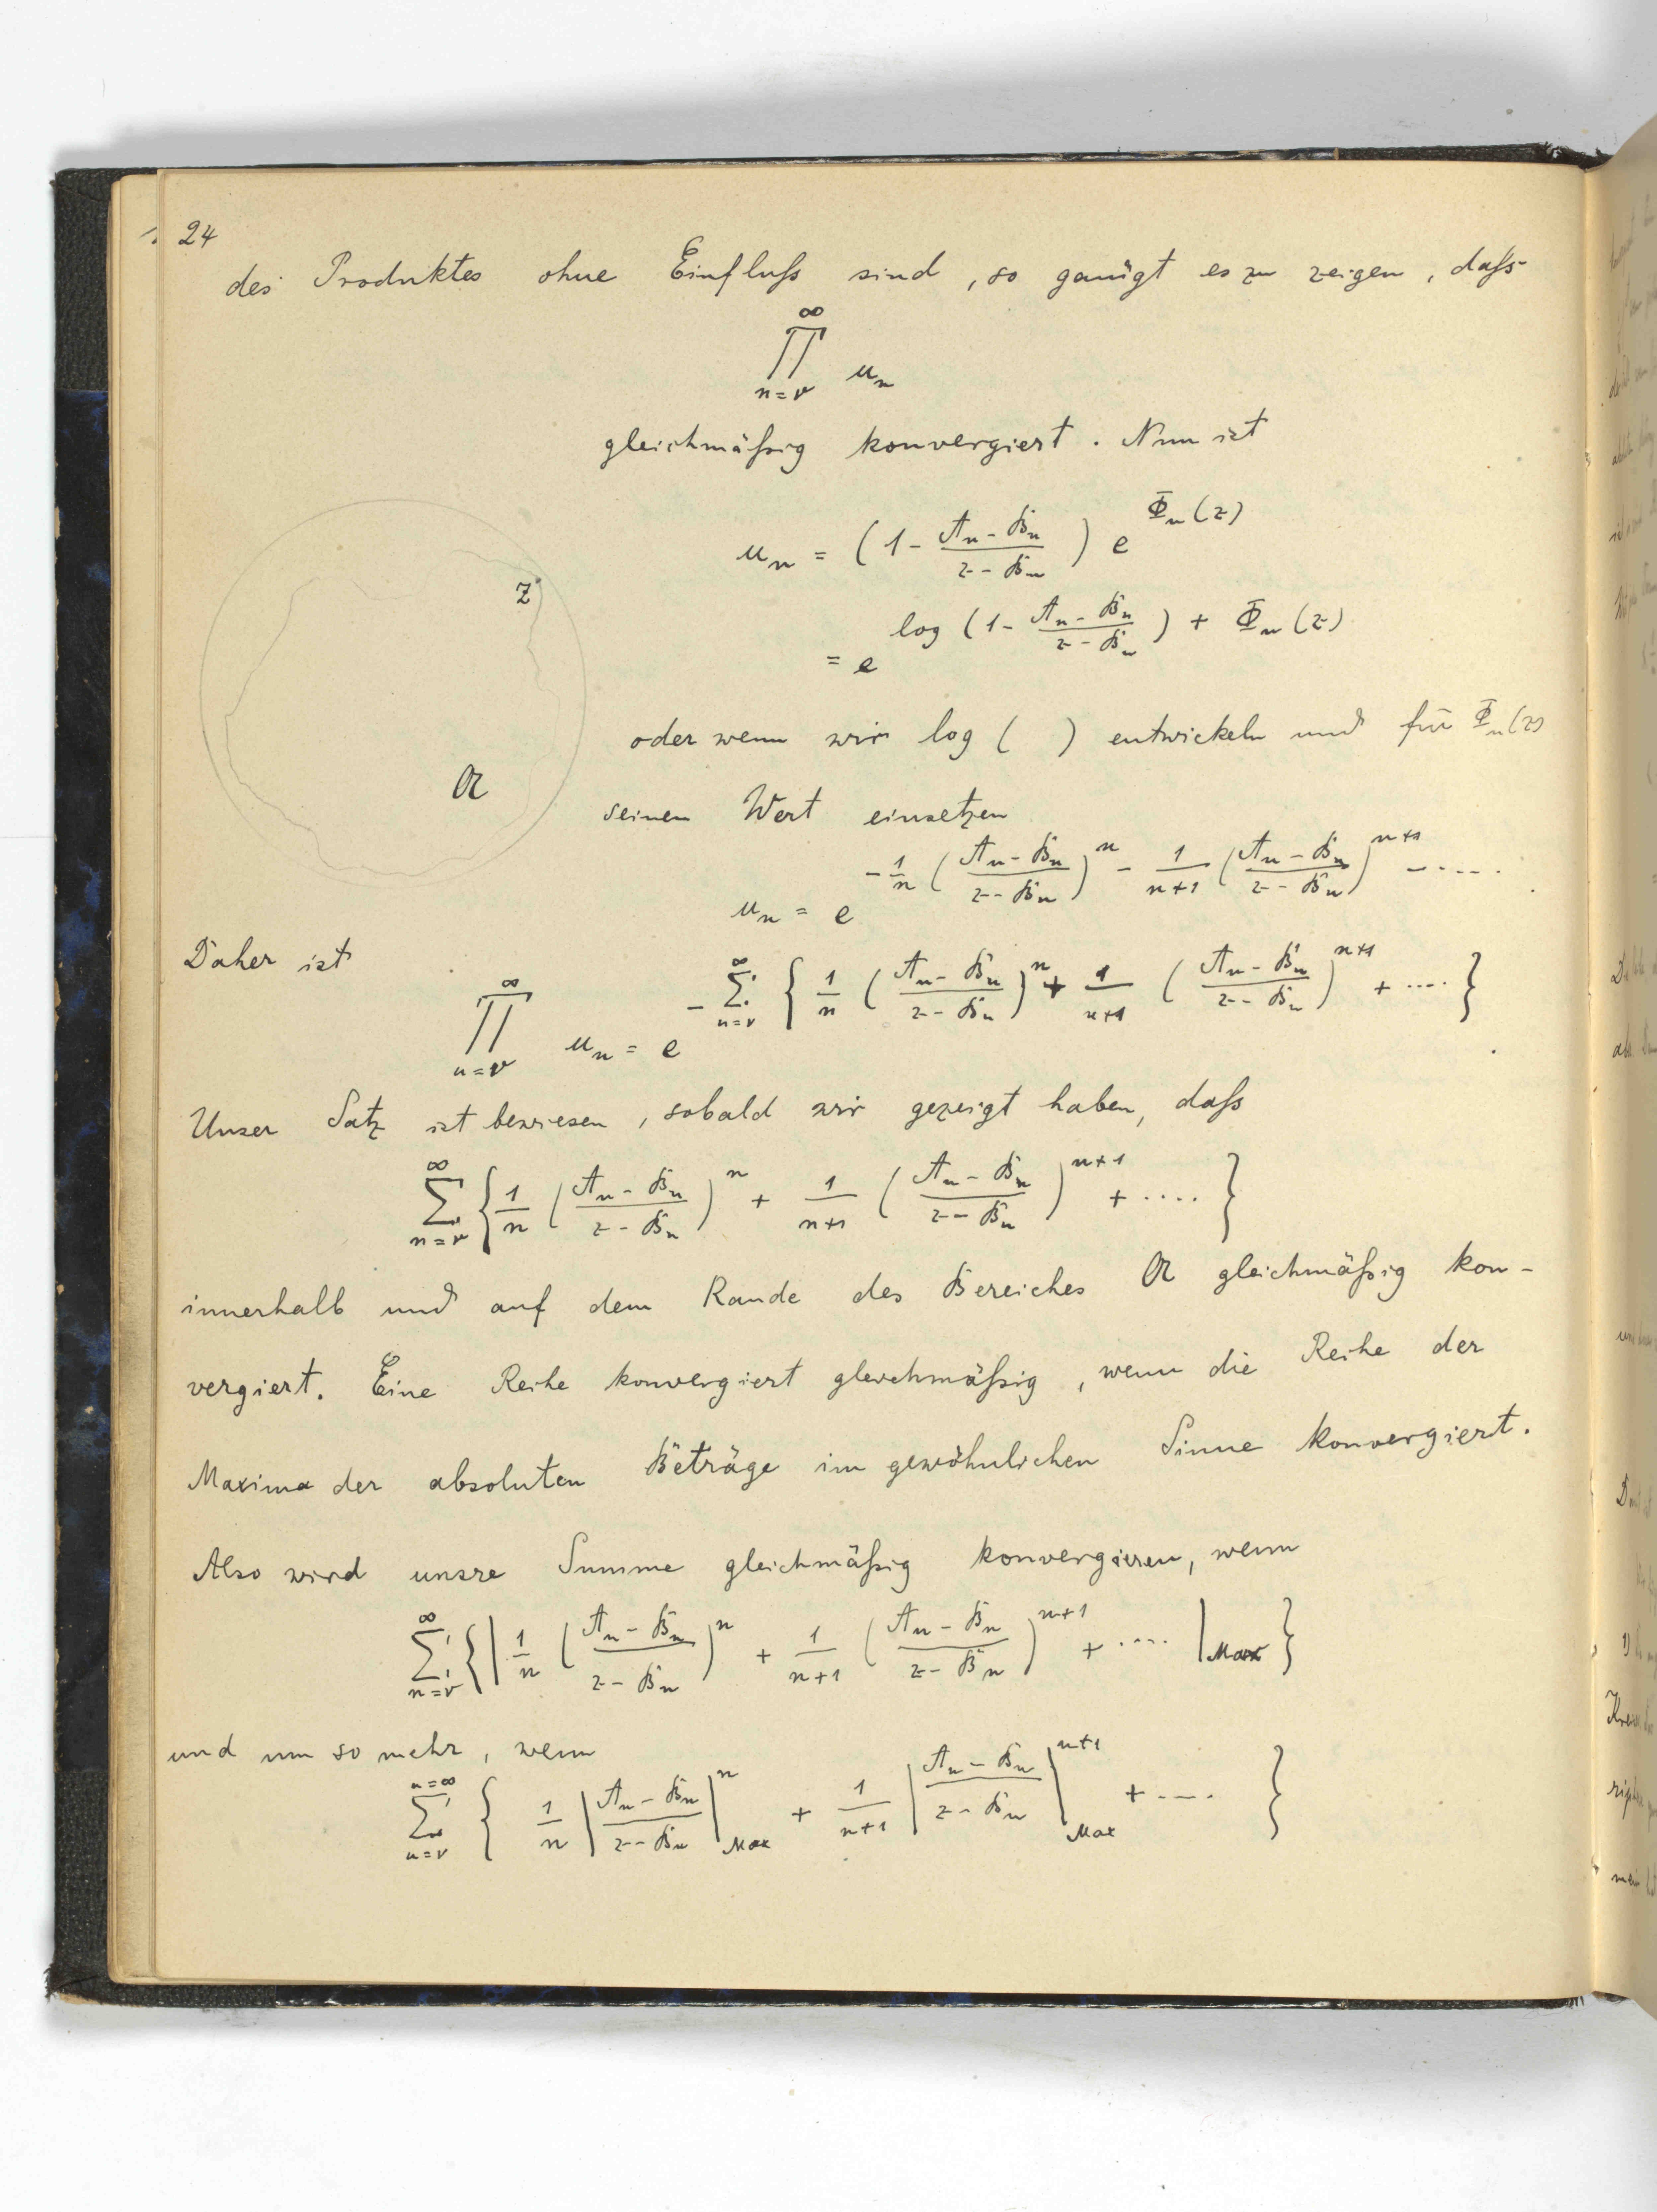 24
des Produktes ohne Einfluß sind, so genügt es zu zeigen, daß
$\prod_{n=\nu}^{\infty} u_n$
gleichmäßig konvergiert. Nun ist
$u_n = \left(1 - \frac{A_n - B_n}{z - B_n}\right) e^{\Phi_n(z)}$
$= e^{\log\left(1 - \frac{A_n - B_n}{z - B_n}\right) + \Phi_n(z)}$
z
oder wenn wir log ( ) entwickeln und für $\Phi_n(z)$
$\mathfrak{A}$
seinen Wert einsetzen
$u_n = e^{-\frac{1}{n}\left(\frac{A_n - B_n}{z - B_n}\right)^n - \frac{1}{n+1}\left(\frac{A_n - B_n}{z - B_n}\right)^{n+1} - \cdots}$
Daher ist
$\prod_{n=\nu}^{\infty} u_n = e^{-\sum_{n=\nu}^{\infty}\left\{\frac{1}{n}\left(\frac{A_n - B_n}{z - B_n}\right)^n + \frac{1}{n+1}\left(\frac{A_n - B_n}{z - B_n}\right)^{n+1} + \cdots\right\}}$
Unser Satz ist bewiesen, sobald wir gezeigt haben, daß
$\sum_{n=\nu}^{\infty}\left\{\frac{1}{n}\left(\frac{A_n - B_n}{z - B_n}\right)^n + \frac{1}{n+1}\left(\frac{A_n - B_n}{z - B_n}\right)^{n+1} + \cdots\right\}$
innerhalb und auf dem Rande des Bereiches $\mathfrak{A}$ gleichmäßig kon-
vergiert. Eine Reihe konvergiert gleichmäßig, wenn die Reihe der
Maxima der absoluten Beträge im gewöhnlichen Sinne konvergiert.
Also wird unsre Summe gleichmäßig konvergieren, wenn
$\sum_{n=\nu}^{\infty}\left\{\left|\frac{1}{n}\left(\frac{A_n - B_n}{z - B_n}\right)^n + \frac{1}{n+1}\left(\frac{A_n - B_n}{z - B_n}\right)^{n+1} + \cdots\right|_{Max}\right\}$
und um so mehr, wenn
$\sum_{n=\nu}^{n=\infty}\left\{\frac{1}{n}\left|\frac{A_n - B_n}{z - B_n}\right|^n_{Max} + \frac{1}{n+1}\left|\frac{A_n - B_n}{z - B_n}\right|^{n+1}_{Max} + \cdots\right\}$